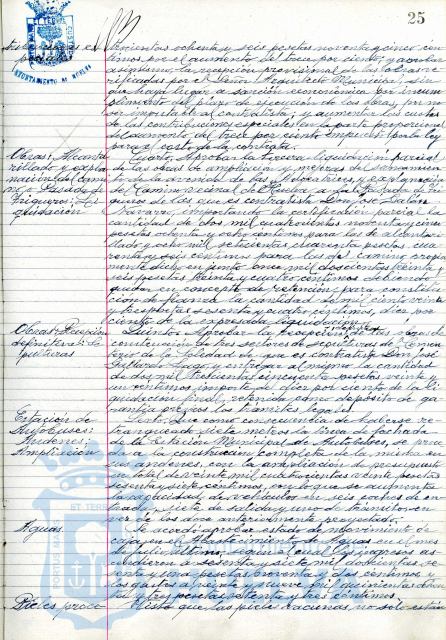 25
AYUNTAMIENTO DE
trescientas ochenta y seis pesetas noventa y cinco cén-
timos por el aumento del trece por ciento, y acordar
asimismo la recepción provisional de las obras
por el Señor Arquitecto Municipal, sin
que haya lugar a sanción económica por incum-
plimiento del plazo de ejecución de las obras, por no
ser imputable al contratista, y aumentar las cuotas
de las contribuciones especiales en la parte proporcional
del aumento del trece por ciento impuesto por la ley
para el coste de la contrata.
Obras: Alcanta-
rillado y expla-
nación
Trigueros: Li-
quidación
Cuarto. Aprobar la tercera liquidación parcial
de las obras de ampliación y mejoras de saneamien-
to de la zona de
de Camino vecinal del Huelva a la Pasada de Tri-
gueros de las que es contratista Don José Galán
Navarro, importando la certificación parcial la
cantidad de dos mil cuatrocientas noventa y cinco
pesetas ochenta y ocho céntimos para las de alcantari-
llado y ocho mil setecientas cuarenta pesetas cua-
renta y seis céntimos para las del camino propia-
mente dicho en junto once mil doscientas treinta y
seis pesetas treinta y cuatro céntimos debiendo
quedar en concepto de retención para constitu-
ción de fianza la cantidad de mil ciento veinte
y tres pesetas sesenta y cuatro céntimos, diez por
ciento de la expresada liquidación.
Obras: Recepción
definitiva de se-
pulturas
Quinto. Aprobar la recepción definitiva
construcción de tres sectores de sepulturas del Cemen-
terio de la Soledad de que es contratista Don José
Gallardo Lago y entregar al mismo la cantidad
de dos mil trescientas cincuenta pesetas veinte y
un céntimos, importe del diez por ciento de la li-
quidación final, retenida como depósito de ga-
rantía previos los trámites legales.
Estación de
Autobuses:
Andenes:
Ampliación
Sexto. Que como consecuencia de haberse re-
tranqueado siete metros la línea de fachada
de la Estación Municipal de Autobuses, se proce-
da a la construcción completa de la misma en
sus andenes, con la ampliación de presupuesto
en total de veinte mil cuatrocientas veinte pesetas
sesenta y siete céntimos, con lo que se aumenta
la capacidad de vehículos en seis coches de en-
trada y siete de salida y uno de tránsito en
vez de los doce anteriormente proyectados.
Aguas.
Se acordó aprobar estado de movimiento de
caja en el Abastecimiento de Aguas en el mes
de julio último, según el cual los ingresos as-
cendieron a sesenta y siete mil doscientas se-
senta y una pesetas noventa y dos céntimos y
los gastos a veinte y nueve mil quinientas ochen-
ta y tres pesetas setenta y tres céntimos.
Pieles proce-
Visto que las pieles vacunas no solo están